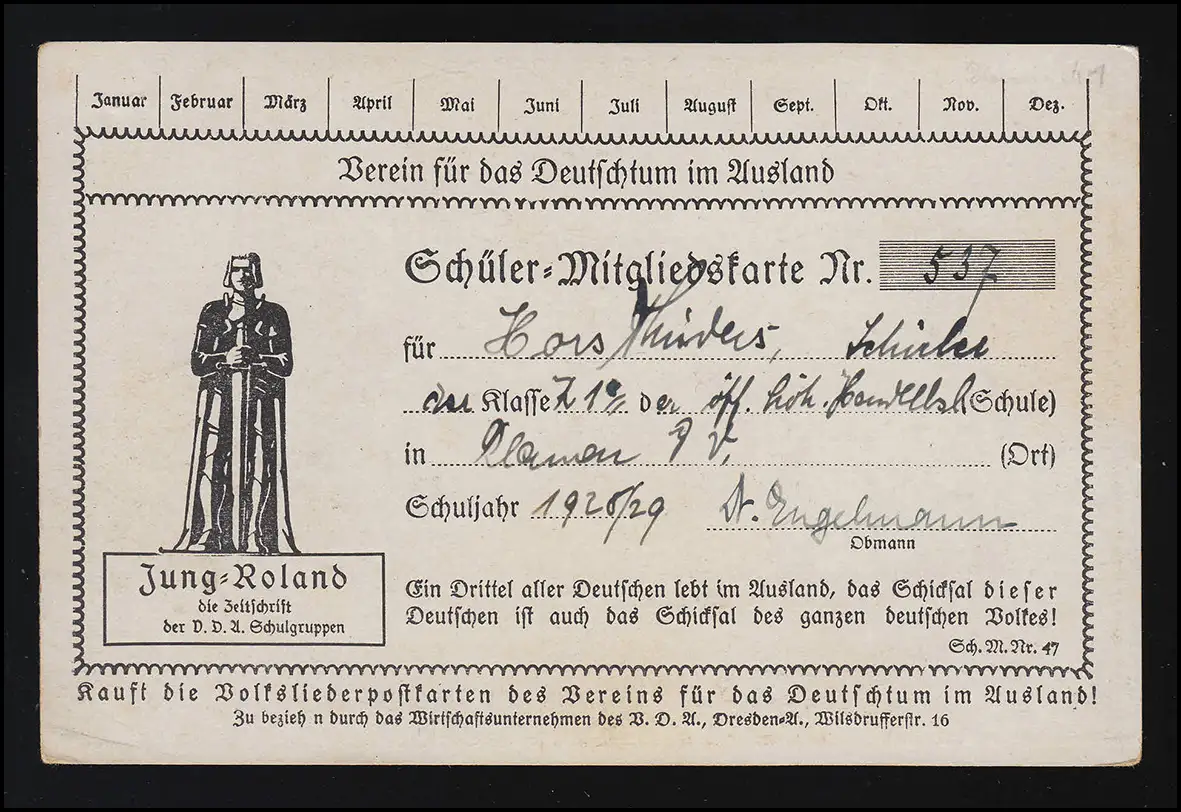 Januar Februar März April Mai Juni Juli August Sept. Okt. Nov. Dez.
Verein für das Deutschtum im Ausland
Schüler-Mitgliedskarte Nr. 537
für Horst Schüler
der Klasse der öff. höh. Handelssch (Schule)
in Plauen V. (Ort)
Schuljahr 1928/29 Engelmann
Obmann
Jung-Roland
die Zeitschrift
der V. D. A. Schulgruppen
Ein Drittel aller Deutschen lebt im Ausland, das Schicksal dieser
Deutschen ist auch das Schicksal des ganzen deutschen Volkes!
Sch. M. Nr. 47
Kauft die Volksliederpostkarten des Vereins für das Deutschtum im Ausland!
Zu bezieh n durch das Wirtschaftsunternehmen des V. D. A., Dresden-A., Wilsdrufferstr. 16